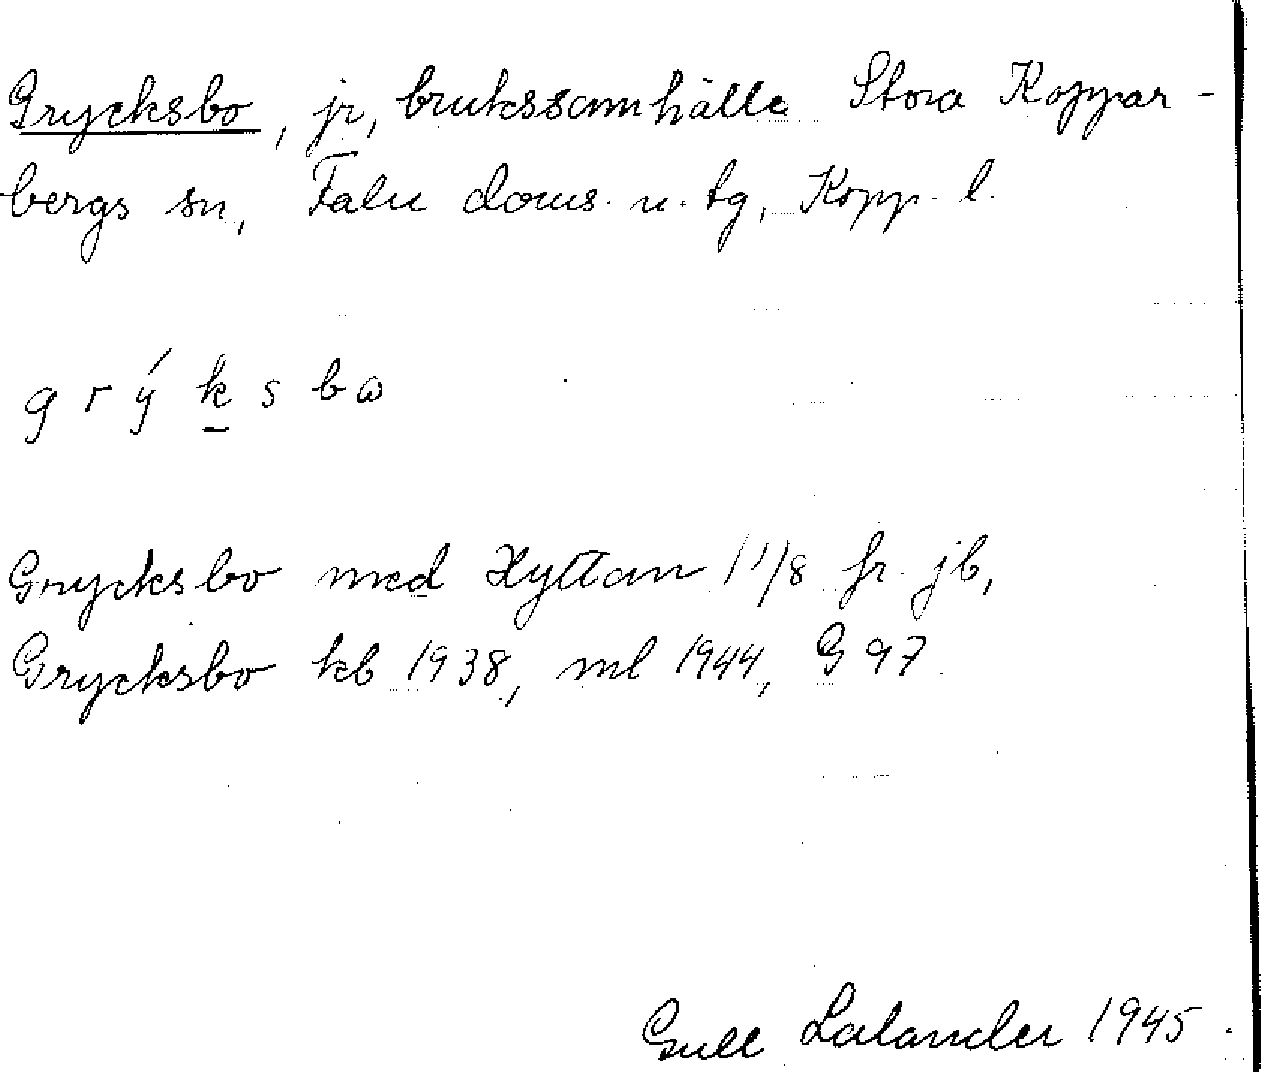 Grycksbo, jr, brukssamhälle Stora Koppar-
bergs sn, Falu doms. u. tg, Kopp. l.
g r ý k s b ω
Grycksbo med Hyttan 1 1/8 fr. jb,
Grycksbo kb 1938, ml 1944, G 97
Gull Lalander 1945.